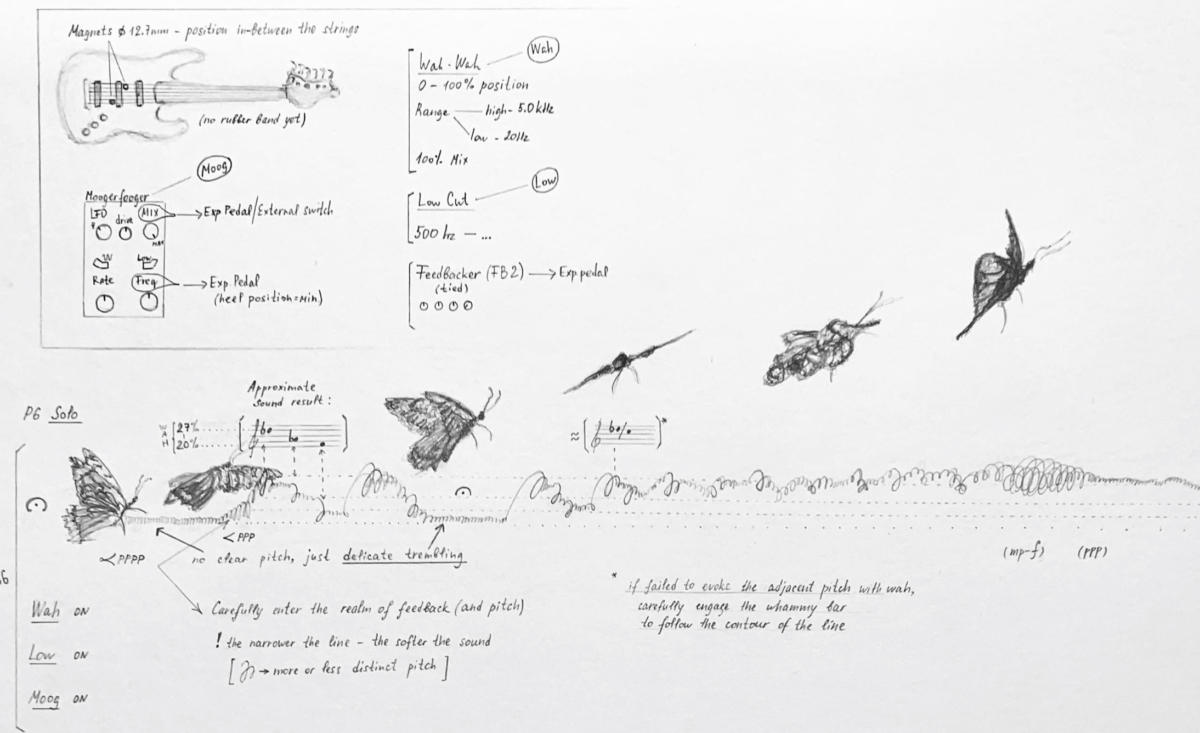 Magnets ϕ 12.7mm - position in-between the strings
(no rubber band yet)
Moog
Moogerfooger
LFO drive MIX
MAX
→ Exp Pedal/External switch
Rate Freq
→ Exp. Pedal
(heel position=Min)
Wah
Wah-Wah
0 - 100% position
Range — high- 5.0 kHz
low - 20Hz
100% Mix
Low
Low Cut
500 hz — ...
Feedbacker (FB2) → Exp pedal
(tied)
P6 Solo
Approximate
sound result:
WAH
27%
20%
≈ *
<PPPP
<PPP
no clear pitch, just delicate trembling
(mp-f) (ppp)
Carefully enter the realm of feedback (and pitch)
! the narrower the line - the softer the sound
[ → more or less distinct pitch ]
* if failed to evoke the adjacent pitch with wah,
carefully engage the whammy bar
to follow the contour of the line
Wah ON
Low ON
Moog ON